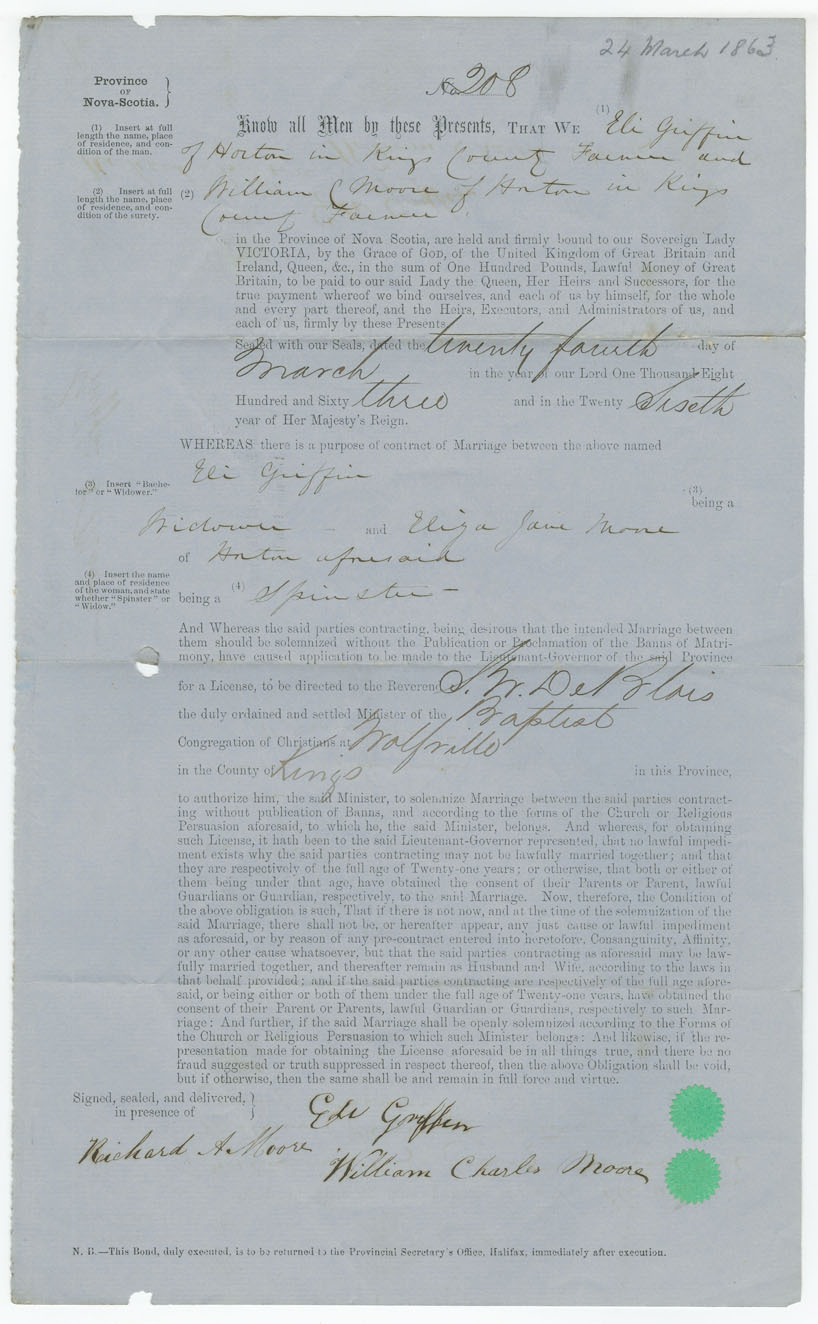 24 March 1863
Province
OF
Nova-Scotia.
No 208
(1) Insert at full
length the name, place
of residence, and con-
dition of the man.
Know all Men by these Presents, THAT WE (1) Eli Griffin
of Horton in Kings County Farmer and
(2) Insert at full
length the name, place
of residence, and con-
dition of the surety.
(2) William C Moore of Horton in Kings
County Farmer
in the Province of Nova Scotia, are held and firmly bound to our Sovereign Lady
VICTORIA, by the Grace of GOD, of the United Kingdom of Great Britain and
Ireland, Queen, &c., in the sum of One Hundred Pounds, Lawful Money of Great
Britain, to be paid to our said Lady the Queen, Her Heirs and Successors, for the
true payment whereof we bind ourselves, and each of us by himself, for the whole
and every part thereof, and the Heirs, Executors, and Administrators of us, and
each of us, firmly by these Presents
Sealed with our Seals, dated the twenty fourth day of
March in the year of our Lord One Thousand Eight
Hundred and Sixty three and in the Twenty Sixeth
year of Her Majesty's Reign.
WHEREAS there is a purpose of contract of Marriage between the above named
Eli Griffin
(3) Insert "Bache-
lor" or "Widower."
(3)
being a
Widower and Eliza Jane Moore
of Horton afresaid
(4) Insert the name
and place of residence
of the woman, and state
whether "Spinster" or
"Widow."
being a (4) Spinster –
And Whereas the said parties contracting, being desirous that the intended Marriage between
them should be solemnized without the Publication or Proclamation of the Banns of Matri-
mony, have caused application to be made to the Lieutenant-Governor of the said Province
for a License, to be directed to the Reverend S. W. DeBlois
the duly ordained and settled Minister of the Baptist
Congregation of Christians at Wolfville
in the County of Kings in this Province,
to authorize him, the said Minister, to solemnize Marriage between the said parties contract-
ing without publication of Banns, and according to the forms of the Church or Religious
Persuasion aforesaid, to which he, the said Minister, belongs. And whereas, for obtaining
such License, it hath been to the said Lieutenant-Governor represented, that no lawful impedi-
ment exists why the said parties contracting may not be lawfully married together; and that
they are respectively of the full age of Twenty-one years; or otherwise, that both or either of
them being under that age, have obtained the consent of their Parents or Parent, lawful
Guardians or Guardian, respectively, to the said Marriage. Now, therefore, the Condition of
the above obligation is such, That if there is not now, and at the time of the solemnization of the
said Marriage, there shall not be, or hereafter appear, any just cause or lawful impediment
as aforesaid, or by reason of any pre-contract entered into heretofore, Consanguinity, Affinity,
or any other cause whatsoever, but that the said parties contracting as aforesaid may be law-
fully married together, and thereafter remain as Husband and Wife, according to the laws in
that behalf provided; and if the said parties contracting are respectively of the full age afore-
said, or being either or both of them under the full age of Twenty-one years, have obtained the
consent of their Parent or Parents, lawful Guardian or Guardians, respectively to such Mar-
riage: And further, if the said Marriage shall be openly solemnized according to the Forms of
the Church or Religious Persuasion to which such Minister belongs: And likewise, if the re-
presentation made for obtaining the License aforesaid be in all things true, and there be no
fraud suggested or truth suppressed in respect thereof, then the above Obligation shall be void,
but if otherwise, then the same shall be and remain in full force and virtue.
Signed, sealed, and delivered,
in presence of
Eli Griffin
Richard A. Moore
William Charles Moore
N. B.—This Bond, duly executed, is to be returned to the Provincial Secretary's Office, Halifax, immediately after execution.